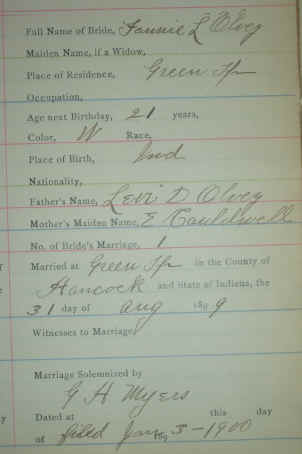 Full Name of Bride, Fannie L Olvey
Maiden Name, if a Widow,
Place of Residence, Green Tp
Occupation,
Age next Birthday, 21 years,
Color, W Race,
Place of Birth, Ind
Nationality,
Father's Name, Levi D Olvey
Mother's Maiden Name, E Cauldwell
No. of Bride's Marriage, 1
Married at Green Tp in the County of
Hancock and State of Indiana, the
31 day of Aug 1899
Witnesses to Marriage,
Marriage Solemnized by
G H Myers
Dated at this day
of filed Jan 3-1900